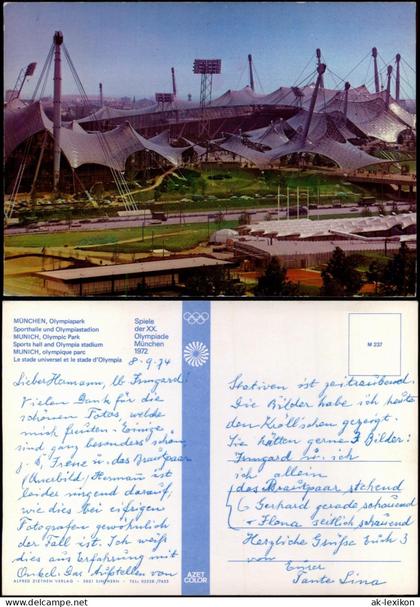 MÜNCHEN, Olympiapark
Sporthalle und Olympiastadion
MUNICH, Olympic Park
Sports hall and Olympia stadium
MUNICH, olympique parc
Le stade universel et le stade d'Olympia
Spiele
der XX.
Olympiade
München
1972
2.9.74
Lieber Hamann, lb. Irmgard!
Vielen Dank für die
schönen Fotos, welche
mich freuten. Einige
sind ganz besonders schön
z.B. Irene u. das Brautpaar
Hermann ist
leider nirgend darauf,
wie dies bei eifrigen
Fotografen gewöhnlich
der Fall ist. Ich weiß
dies aus Erfahrung mit
Onkel. Das Aufstellen von
ALFRED ZIETHEN VERLAG · 5021 SINTHERN · TEL.: 02238/7623
AZET
COLOR
M 237
Stativen ist zeitraubend.
Die Bilder habe ich heute
den Kröll'schen gezeigt.
Sie hätten gerne 3 Bilder:
Irmgard u. ich
ich allein
das Brautpaar stehend
Gerhard gerade schauend
+ Ilona seitlich schauend
Herzliche Grüße Euch 3
von Eurer
Tante Lina
© www.ak-lexikon